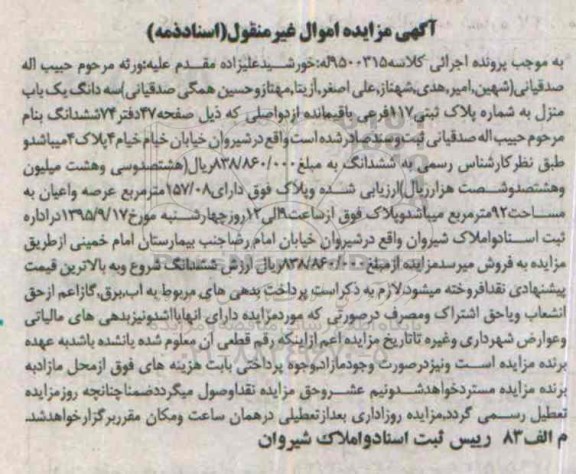 آگهی مزایده اموال غیرمنقول(اسنادذمه)
به موجب پرونده اجرائی کلاسه۹۵۰۰۳۱۵له:خورشیدعلیزاده مقدم علیه:ورثه مرحوم حبیب اله
صدقیانی(شهین,امیر,هدی,شهناز,علی اصغر,آزیتا,مهنازوحسین همگی صدقیانی)سه دانگ یک باب
منزل به شماره پلاک ثبتی۱۱۷فرعی باقیمانده ازدواصلی که ذیل صفحه۴۷دفتر۷۴ششدانگ بنام
مرحوم حبیب اله صدقیانی ثبت وسندصادرشده است واقع درشیروان خیابان خیام خیام۴پلاک۴میباشدو
طبق نظرکارشناس رسمی به ششدانگ به مبلغ۸۳۸/۸۶۰/۰۰۰ریال(هشتصدوسی وهشت میلیون
وهشتصدوشصت هزارریال)ارزیابی شده وپلاک فوق دارای۱۵۷/۰۸مترمربع عرصه واعیان به
مساحت۹۲مترمربع میباشدوپلاک فوق ازساعت۹الی۱۲روزچهارشنبه مورخ۱۳۹۵/۹/۱۷دراداره
ثبت اسنادواملاک شیروان واقع درشیروان خیابان امام رضاجنب بیمارستان امام خمینی ازطریق
مزایده به فروش میرسدمزایده ازمبلغ۸۳۸/۸۶۰/۰۰۰ریال ارزش ششدانگ شروع وبه بالاترین قیمت
پیشنهادی نقدافروخته میشود,لازم به ذکراست پرداخت بدهی های مربوط به اب,برق,گازاعم ازحق
انشعاب ویاحق اشتراک ومصرف درصورتی که موردمزایده دارای انهابااشدونیزبدهی های مالیاتی
وعوارض شهرداری وغیره تاتاریخ مزایده اعم ازاینکه رقم قطعی آن معلوم شده یانشده باشدبه عهده
برنده مزایده است ونیزدرصورت وجودمازاد,وجوه پرداختی بابت هزینه های فوق ازمحل مازادبه
برنده مزایده مستردخواهدشدونیم عشروحق مزایده نقداوصول میگرددضمناچنانچه روزمزایده
تعطیل رسمی گردد,مزایده روزاداری بعدازتعطیلی درهمان ساعت ومکان مقرربرگزارخواهدشد.
م الف۸۳ رییس ثبت اسنادواملاک شیروان